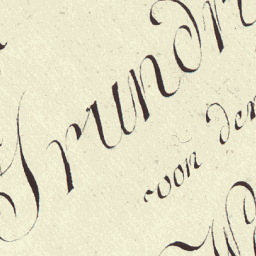 Grundr
von der